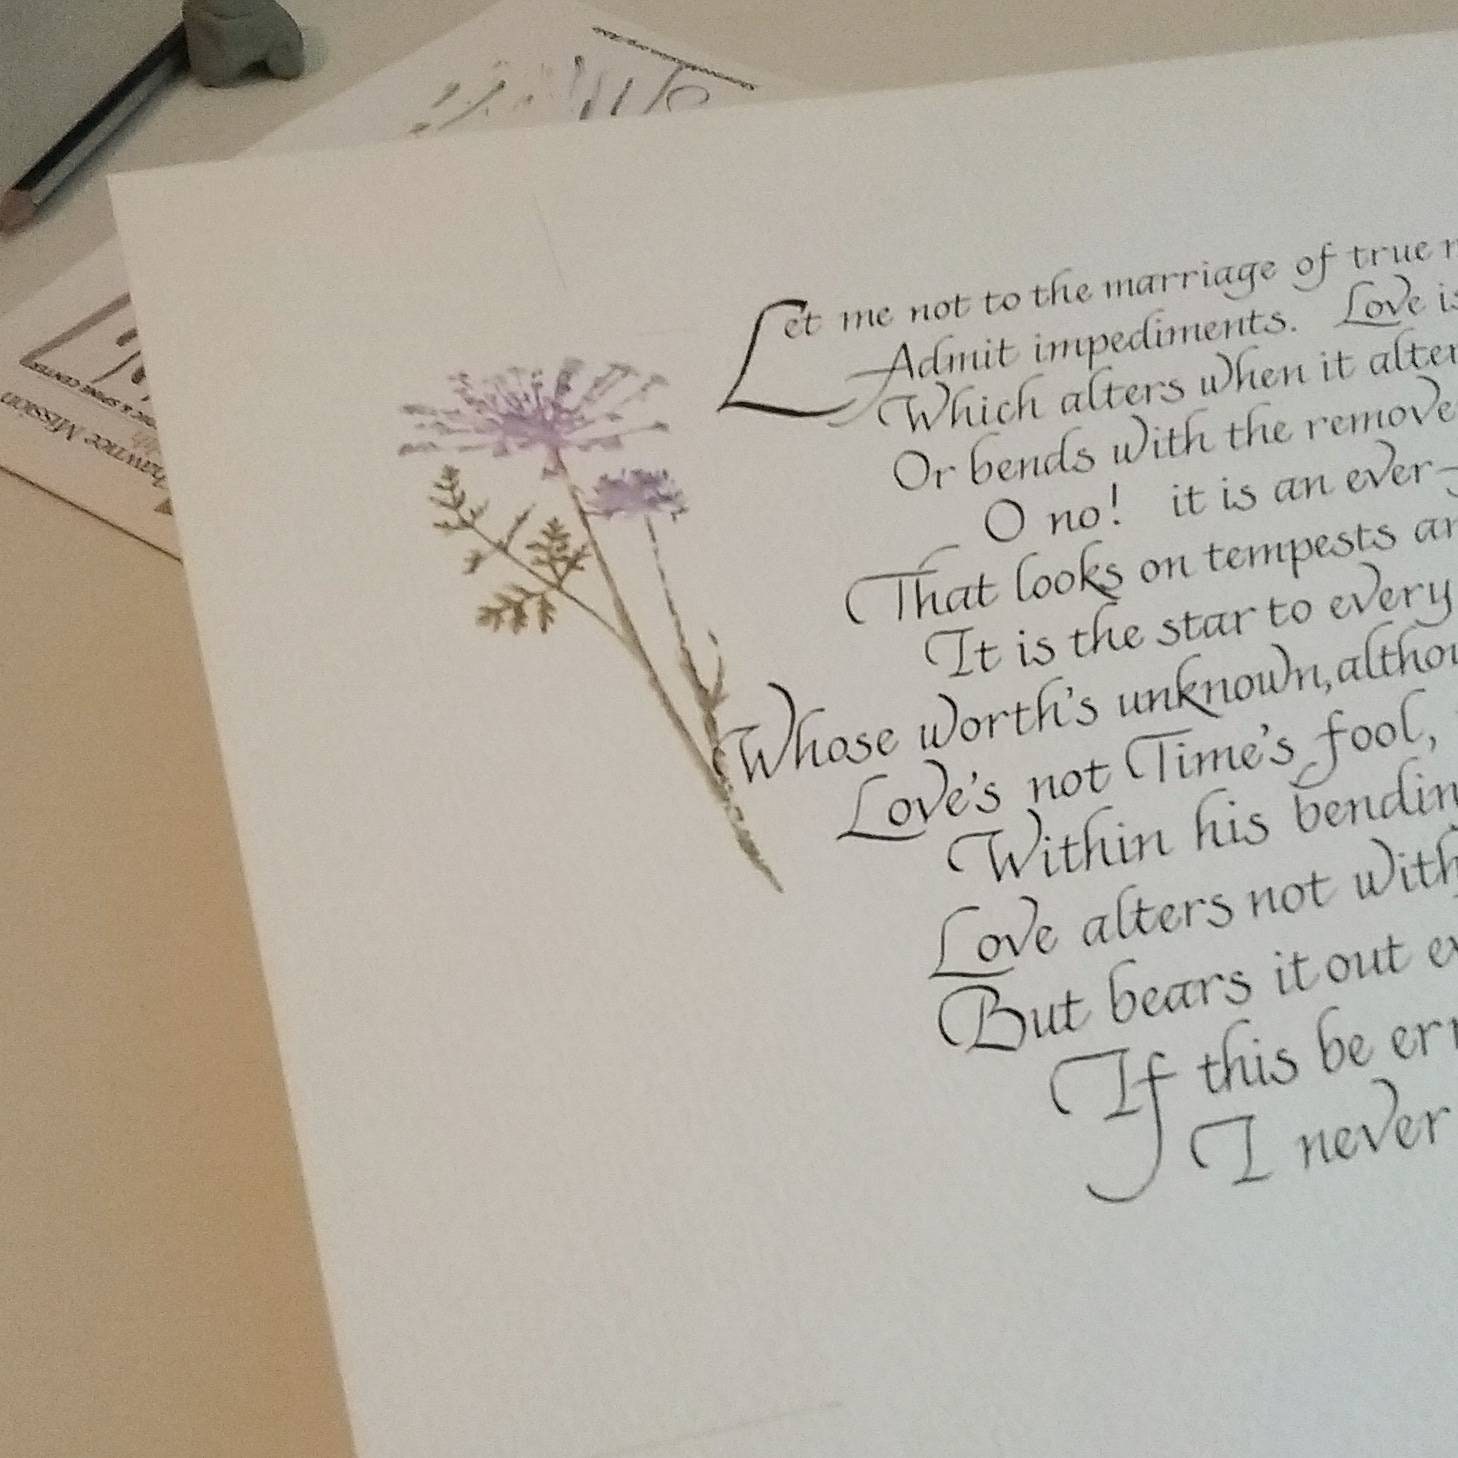 Let me not to the marriage of true
Admit impediments. Love is
Which alters when it alter
Or bends with the remove
O no! it is an ever-
That looks on tempests an
It is the star to every
Whose worth's unknown, althou
Love's not Time's fool,
Within his bendin
Love alters not with
But bears it out e
If this be err
I never
& SPINE CENTER
hawnee Mission